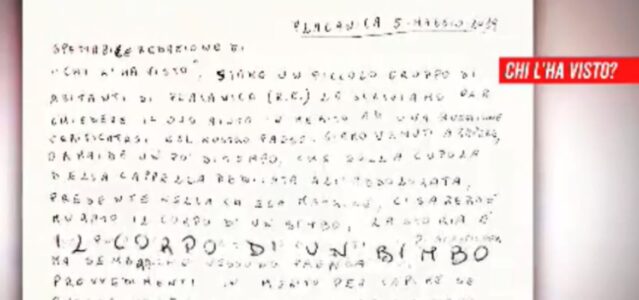 PLACANICA 5-MAGGIO 2019
SPETTABILE REDAZIONE DI
"CHI L'HA VISTO", SIAMO UN PICCOLO GRUPPO DI
CHI L'HA VISTO?
ABITANTI DI PLACANICA (R.C.) LE SCRIVIAMO PER
CHIEDERE IL SUO AIUTO IN MERITO AD UNA QUESTIONE
NEL NOSTRO PAESE. SIAMO VENUTI A SAPERE,
UN PO' DI TEMPO, CHE SULLA CUPOLA
DELLA CAPPELLA DEDICATA ALL'ADDOLORATA,
PRESENTE NELLA CHIESA MADRE, CI SAREBBE
MURATO IL CORPO DI UN BIMBO, LA STORIA È
IL CORPO DI UN BIMBO
MA SEMBRA CHE NESSUNO PRENDA
PROVVEDIMENTI IN MERITO PER CAPIRE SE